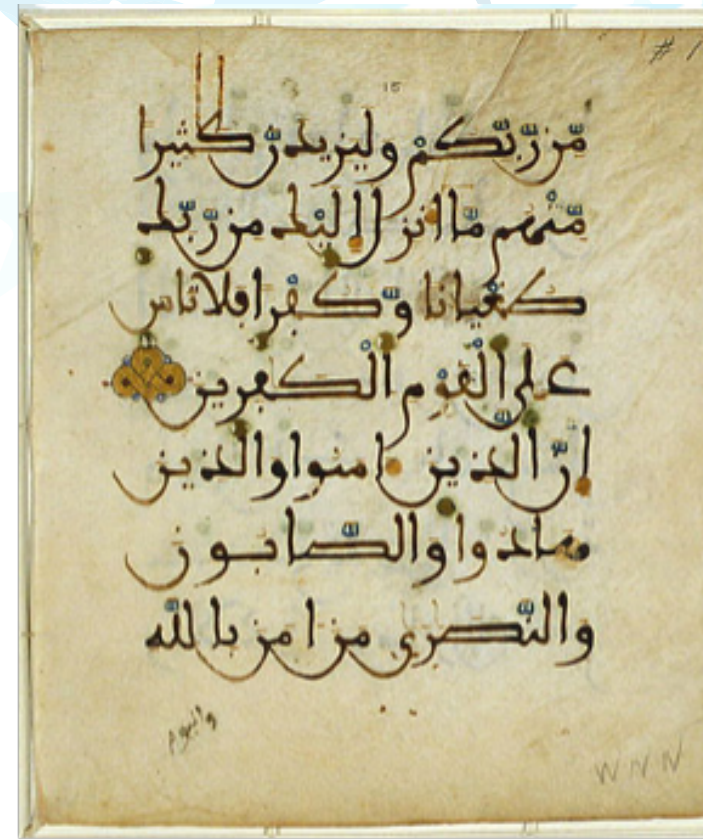 # 1
15
مِّن رَّبِّكُمْ وليزيدنّ كثيرا
مِّنْهم مّا انزل اليْك من رّبّك
طغْيانا وّكفْرا فلا تاس
على الْقوْم الْكفرين
انّ الذين امنوا والذين
هادوا والصّابون
والنّصرى من امن بالله
واليوم
WNN